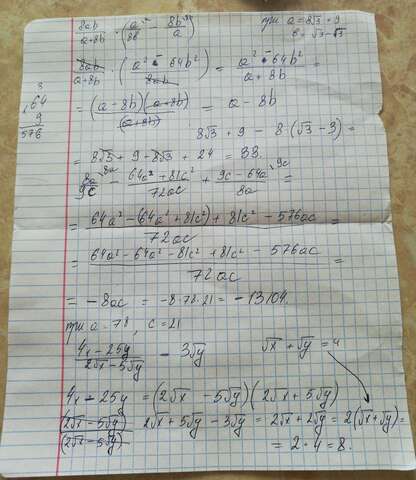 8ab/(a+8b) · (a/8b − 8b/a) при a = 8√3 + 9
b = √3 − √3
8ab/(a+8b) · (a² − 64b²)/8ab = (a² − 64b²)/(a + 8b) =
64
9
576
= (a − 8b)(a + 8b)/(a + 8b) = a − 8b
8√3 + 9 − 8(√3 − 3) =
= 8√3 + 9 − 8√3 + 24 = 33.
8a/9c − (64a² + 81c²)/72ac + (9c − 64a)/8a =
= (64a² − (64a² + 81c²) + 81c² − 576ac)/72ac =
= (64a² − 64a² − 81c² + 81c² − 576ac)/72ac =
= −8ac = −8·78·21 = −13104.
при a = 78, c = 21
(4x − 25y)/(2√x − 5√y) − 3√y √x + √y = 4
4x − 25y = (2√x − 5√y)(2√x + 5√y)
(2√x − 5√y) 2√x + 5√y − 3√y = 2√x + 2√y = 2(√x + √y) =
(2√x − 5√y) = 2 · 4 = 8.